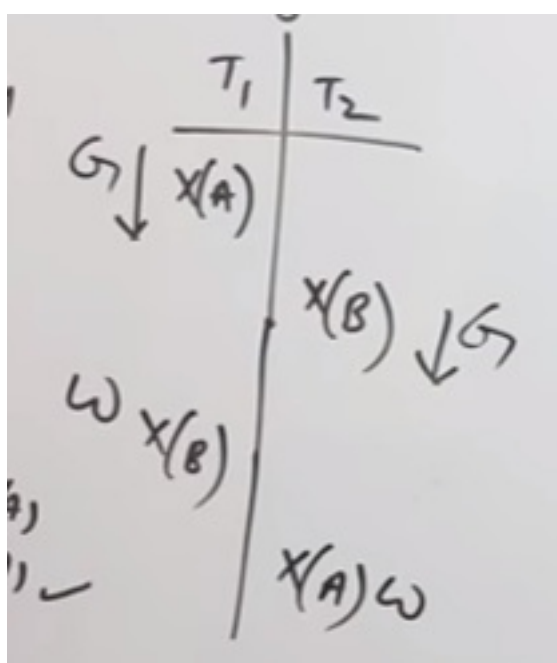 T1 T2
G X(A)
X(B) G
W X(B)
X(A) W